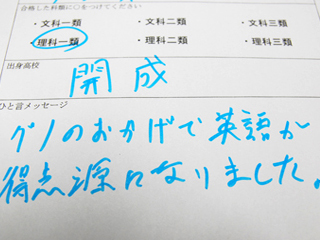 合格した科類に○をつけてください
・文科一類 ・文科二類 ・文科三類
・理科一類 ・理科二類 ・理科三類
出身高校
開成
ひと言メッセージ
グノのおかげで英語が
得点源になりました。